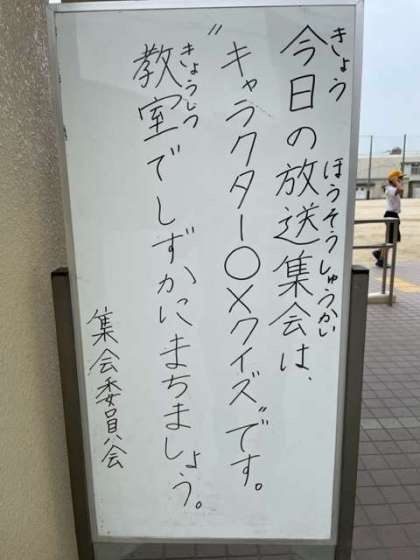 きょう
今日の放送集会は、
ほうそうしゅうかい
"キャラクター〇×クイズ"です。
きょうしつ
教室でしずかにまちましょう。
集会委員会